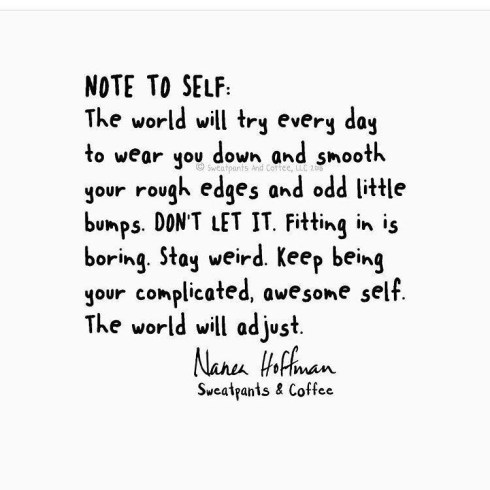 NOTE TO SELF:
The world will try every day
to wear you down and smooth
© Sweatpants And Coffee, LLC
your rough edges and odd little
bumps. DON'T LET IT. Fitting in is
boring. Stay weird. Keep being
your complicated, awesome self.
The world will adjust.
Nanea Hoffman
Sweatpants & Coffee